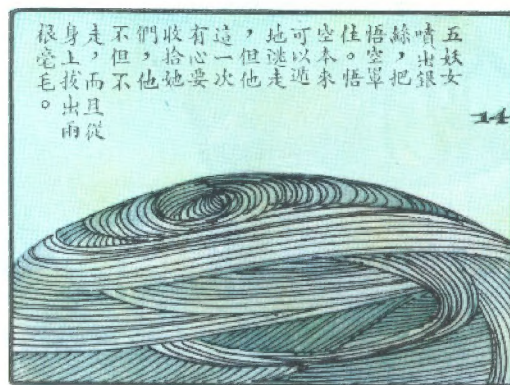 五妖女
噴出銀
絲，把
悟空罩
住。悟
空本來
可以遁
地逃走
，但他
這一次
有心要
收拾她
們，他
不但不
走，而且從
身上拔出兩
根毫毛。
14